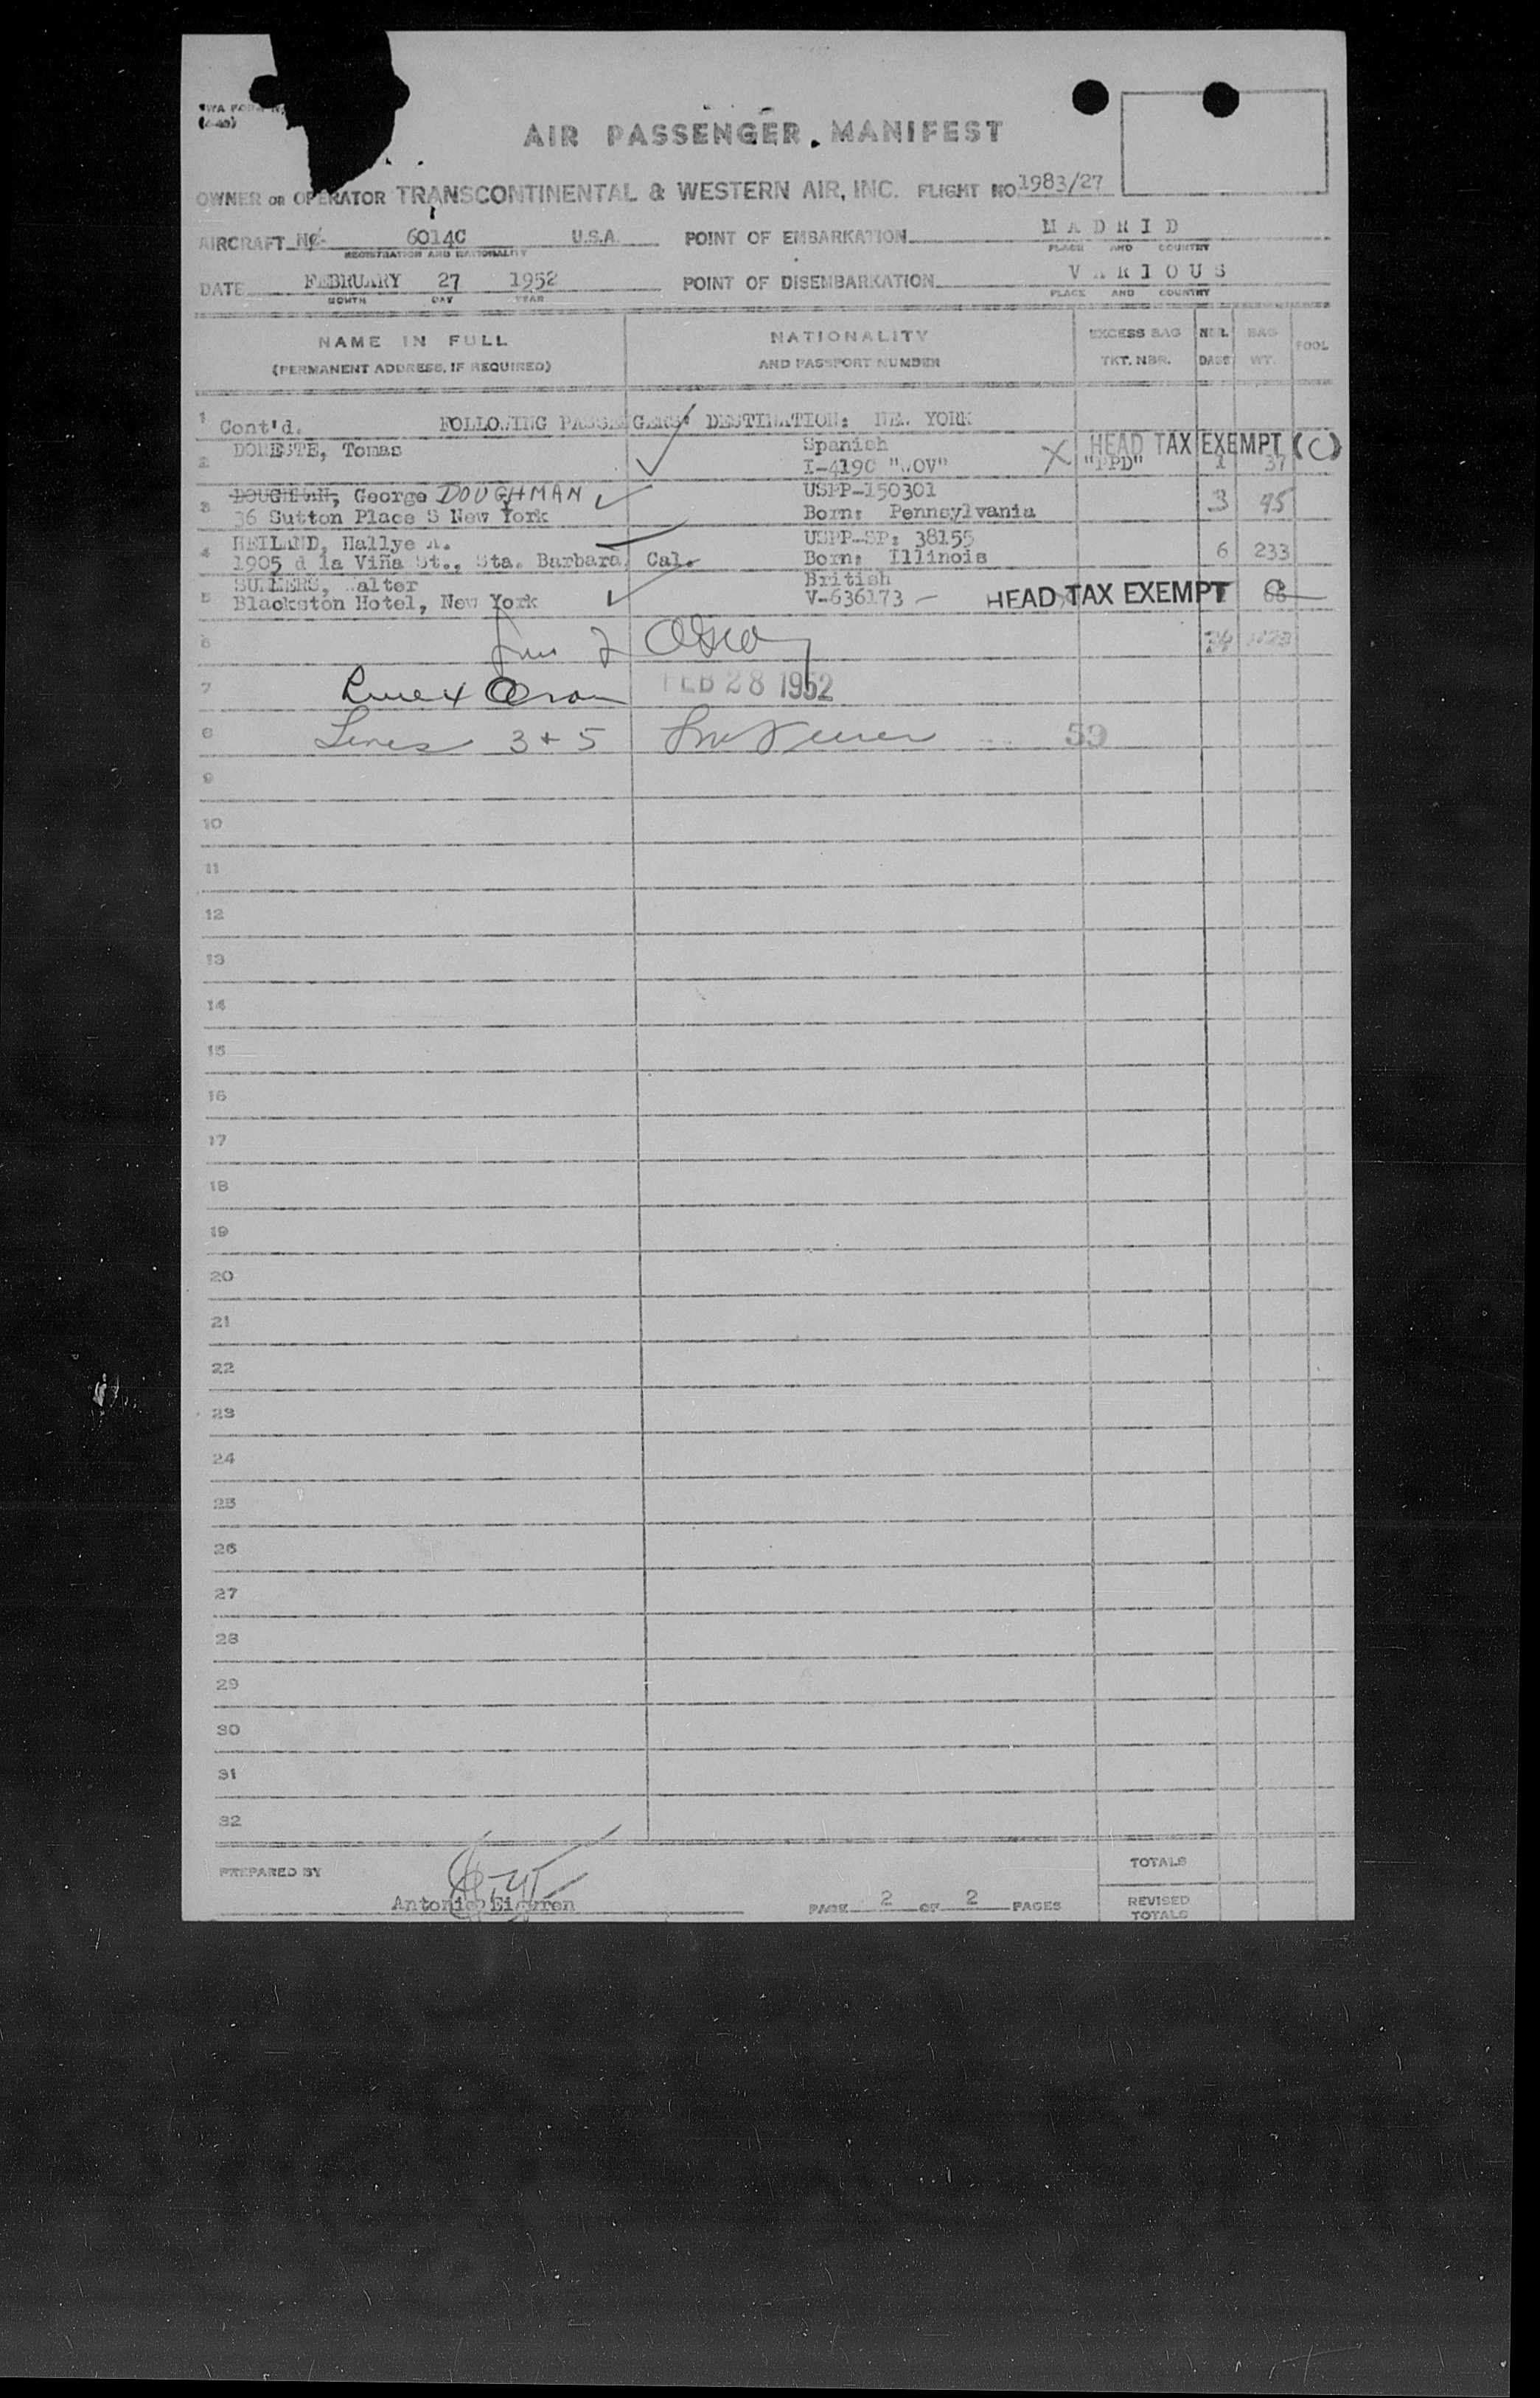 TWA FORM
AIR PASSENGER MANIFEST
OWNER OR OPERATOR TRANSCONTINENTAL & WESTERN AIR, INC. FLIGHT NO 1983/27
AIRCRAFT No. 6014C U.S.A. POINT OF EMBARKATION MADRID
REGISTRATION AND NATIONALITY PLACE AND COUNTRY
DATE FEBRUARY 27 1952 POINT OF DISEMBARKATION VARIOUS
MONTH DAY YEAR PLACE AND COUNTRY
NAME IN FULL NATIONALITY EXCESS BAG NBR. BAG
(PERMANENT ADDRESS, IF REQUIRED) AND PASSPORT NUMBER TKT. NBR. BAGS WT. POOL
1 Cont'd. FOLLOWING PASSENGERS' DESTINATION: NEW YORK
DORESTE, Tomas Spanish HEAD TAX EXEMPT (C)
2 I-4190 "NOV" X "PPD" 1 37
DOUGHMAN, George DOUGHMAN USPP-150301
3 36 Sutton Place S New York Born: Pennsylvania 3 95
HEILAND, Hallye A. USPP-SP: 38155
4 1905 d la Viña St., Sta. Barbara, Cal. Born: Illinois 6 233
SUMMERS, Walter British
5 Blackston Hotel, New York V-636173 HEAD TAX EXEMPT
6
7 FEB 28 1952
8 Lines 3 + 5 59
9
10
11
12
13
14
15
16
17
18
19
20
21
22
23
24
25
26
27
28
29
30
31
32
PREPARED BY TOTALS
Antonio Eiguren PAGE 2 OF 2 PAGES REVISED
TOTALS